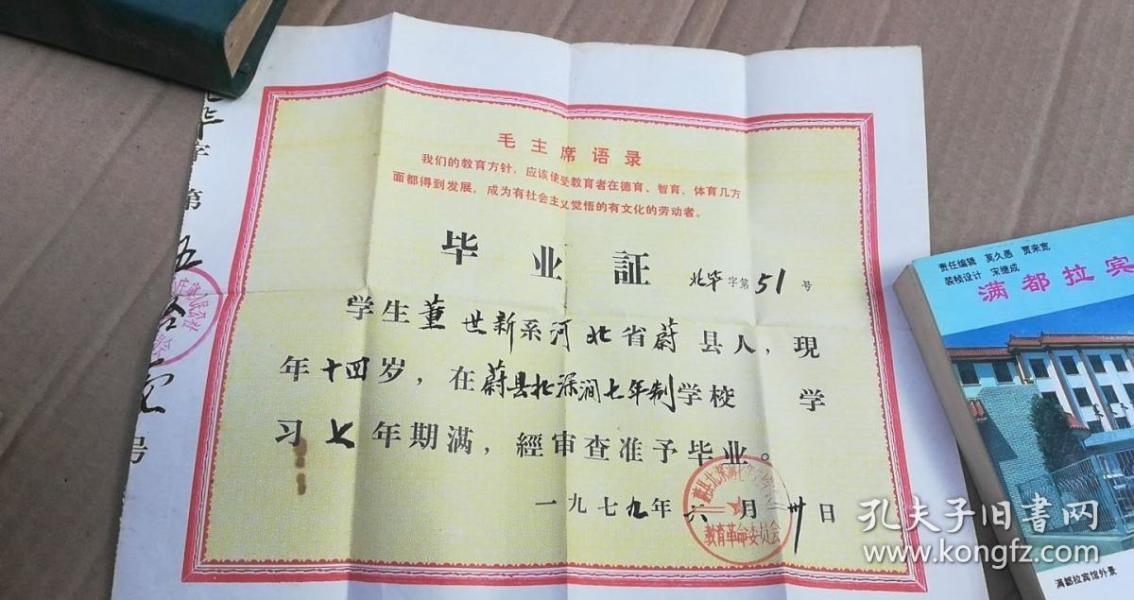 毛主席语录
我们的教育方针，应该使受教育者在德育、智育、体育几方
面都得到发展，成为有社会主义觉悟的有文化的劳动者。
毕业証
北毕字第51号
学生董世新系河北省蔚县人，现
年十四岁，在蔚县北深涧七年制学校 学
习七年期满，經审查准予毕业。
一九七九年六月卅日
教育革命委员会
毕字第五
号
责任编辑 莫久愚 贾来宽
装帧设计 宋继成
满都拉宾
满都拉宾馆外景
孔夫子旧书网
www.kongfz.com